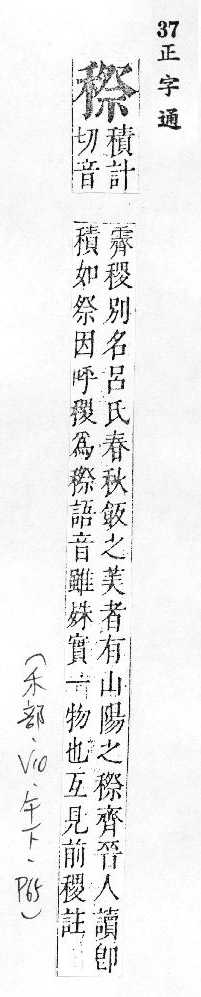 37 正字通
穄
積計
切音
霽稷別名呂氏春秋飯之美者有山陽之穄齊晉人讀卽
積如祭因呼稷爲穄語音雖姝實一物也互見前稷註
(禾部、V10、午下、P65)